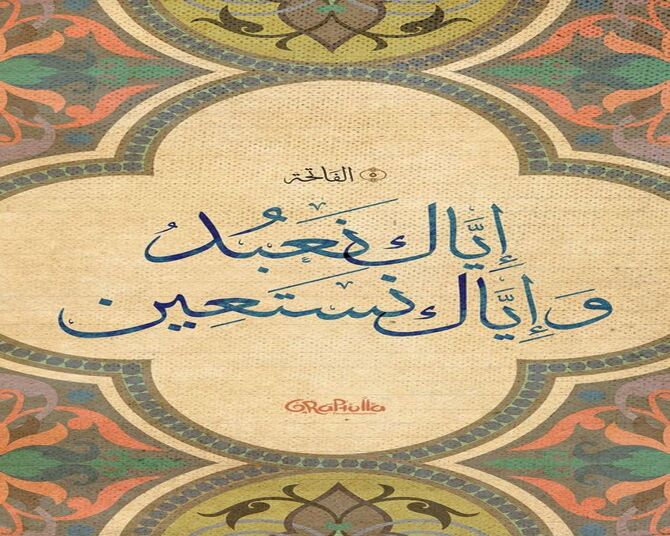 الفاتحة ٥
إِيَّاكَ نَعْبُدُ
وَإِيَّاكَ نَسْتَعِين
GRaPiulla